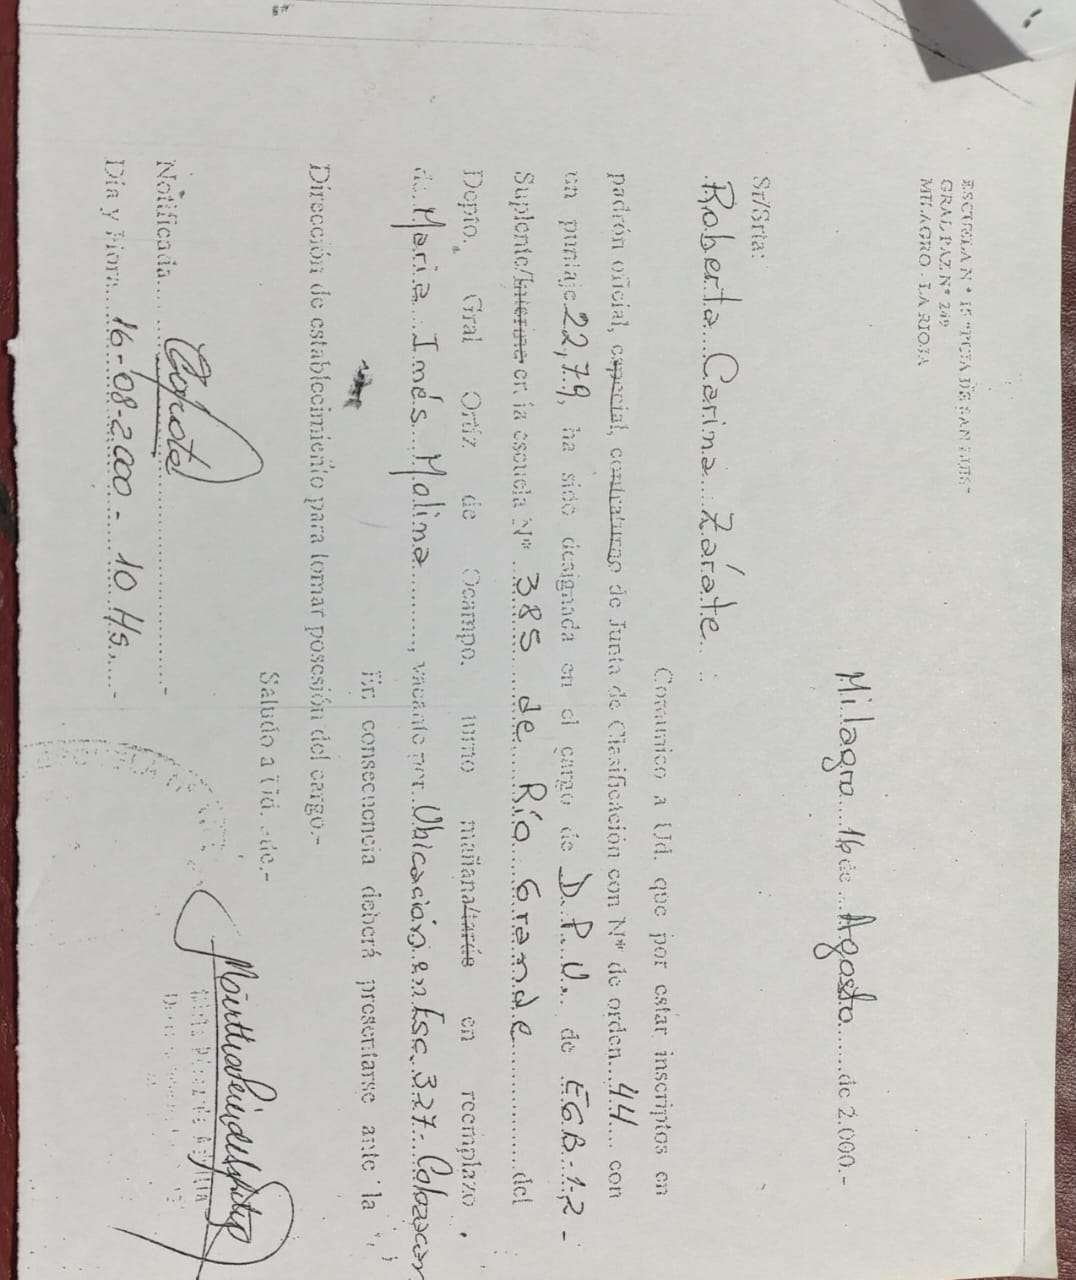 ESCUELA N° 15 "PCIA DE SAN LUIS"
GRAL PAZ N° 249
MILAGRO - LA RIOJA
Milagro...16 de...Agosto......de 2.000.-
Sr/Srta:
.Roberta...Carina...Zárate...
Comunico a Ud. que por estar inscriptos en
padrón oficial, especial, contraturno de Junta de Clasificación con N° de orden...44.... con
un puntaje 22,79, ha sido designada en el cargo de D.P.U.. de EGB-1,2-
Suplente/Interino en la escuela N° ..385...de...Río...Grande............del
Depto. Gral Ortiz de Ocampo. turno mañana/tarde en reemplazo
de.Maria...Inés...Molina.........., vacante por..Ubicación.en.Esc..327-Colozacan
En consecuencia deberá presentarse ante la
Dirección de establecimiento para tomar posesión del cargo.-
Saludo a Ud. .de.-
Notificada......................-
Día y Hora....16-08-2.000-...10 Hs......-